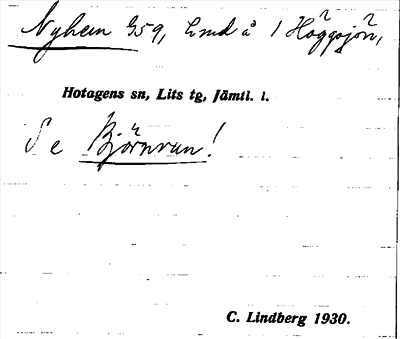 Nyhem G59, Lmd å 1 Höggsjön,
Hotagens sn, Lits tg, Jämtl. l.
Se Björnvan!
C. Lindberg 1930.